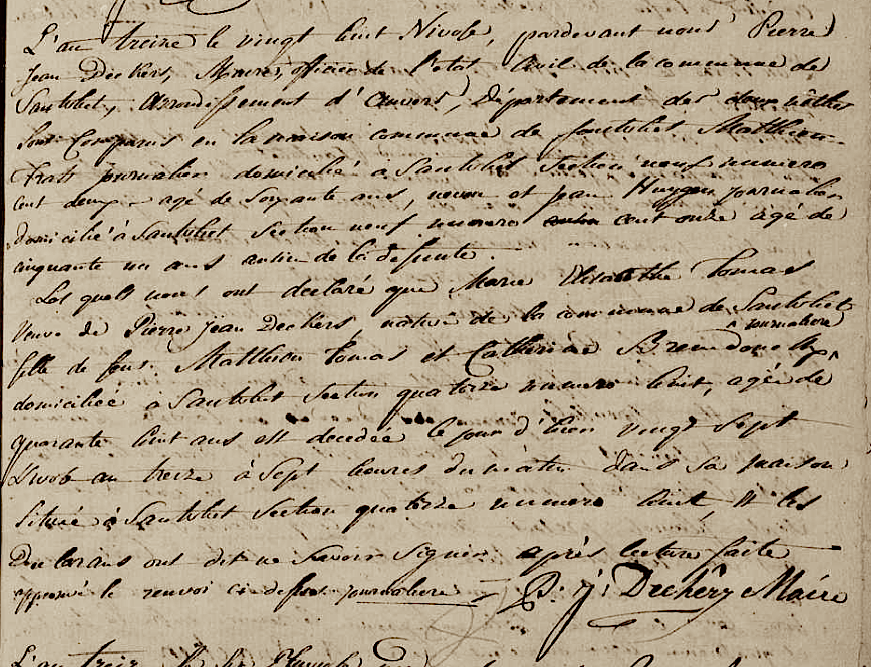 L'an treize le vingt huit Nivose, pardevant nous Pierre
Jean Deckers, Maire, officier de l'etat Civil de la commune de
Santvliet, arrondissement d'anvers, Département des deux nêthes
Sont Comparus en la maison commune de Santvliet Matthieu
journalier domicilié à Santvliet Section neuf numero
cent deux agé de Soixante ans, neveu et jean Huygen journalier
domicilié à Santvliet Section neuf numero cent onze agé de
cinquante un ans de la defunte.
Les quels nous ont declaré que Marie Elisabethe Tomas
Veuve de Pierre Jean Deckers, native de la commune de Santvliet
journaliere
fille de feus Matthieu Tomas et Catherine
domiciliée à Santvliet Section quatorze numero huit, agée de
quarante huit ans est decedée le jour d'hier vingt Sept
Nivose an treize à Sept heures du matin dans Sa maison
Située à Santvliet Section quatorze numero huit, et les
Declarans ont dit ne Savoir Signer après lecture faite
approuvé le renvoi ci dessus journaliere
P: J: Maire
L'an treize le